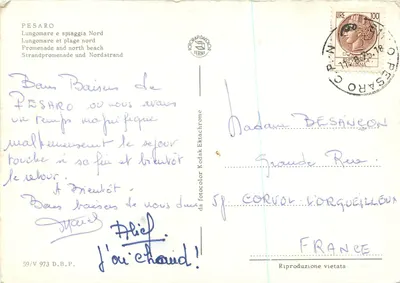 PESARO
Lungomare e spiaggia Nord
Lungomare et plage nord
Promenade and north beach
Strandpromenade und Nordstrand
LIRE 100
PESARO C.P.N.
Bons Baisers de
PESARO ou nous avons
un temps magnifique
malheureusement le séjour
touche à sa fin et bientôt
le retour.
A Bientôt.
Bons baisers de nous deux
J'ai chaud!
Madame BESANÇON
Grande Rue
58 CORVOL L'ORGUEILLEUX
FRANCE
da fotocolor Kodak Ektachrome
59/V 973 D.B.P.
Riproduzione vietata